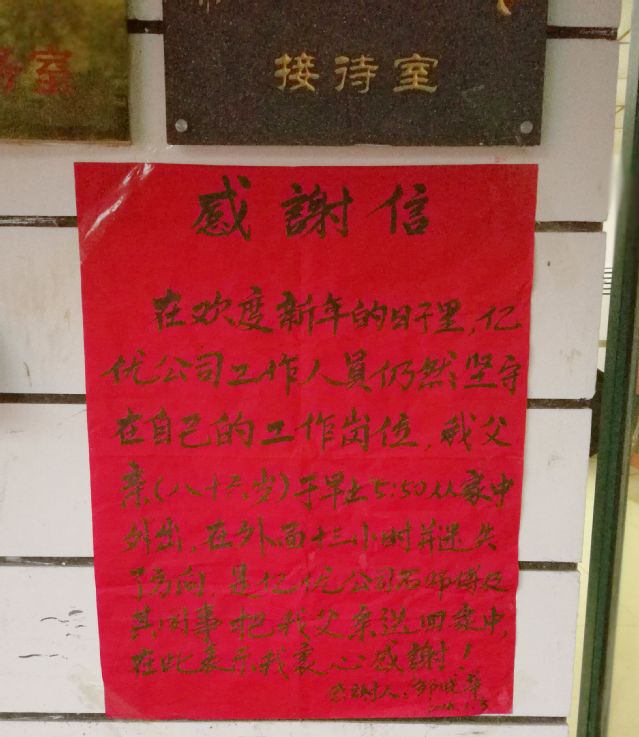 室
接待室
感謝信
在欢度新年的日子里,亿
优公司工作人員仍然坚守
在自己的工作岗位,我父
亲(八十六岁)于早上5:50从家中
外出,在外面十三小时并迷失
方向,是亿优公司石师傅及
其同事把我父亲送回家中,
在此表示我衷心感謝!
感谢人: